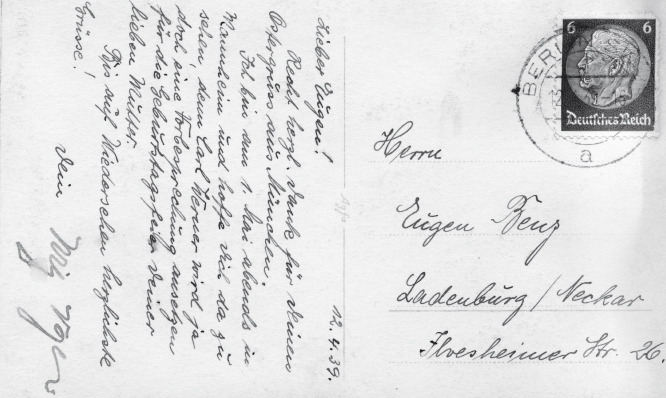 12. 4. 39.
Lieber Eugen!
Recht hezl. Dank für Deinen
Ostergruss aus München.
Ich bin am 1. Mai abends in
Mannheim und hoffe Dich da zu
sehen, denn Carl Werner wird ja
doch eine Vorbesprechung ansetzen
für die Geburtstagsfeier Deiner
lieben Mutter.
Bis auf Wiedersehen herzlichste
Grüsse!
Dein
BERLIN
a
6 6
Deutsches Reich
Herrn
Eugen Benz
Ladenburg / Neckar
Ilvesheimer Str. 26.